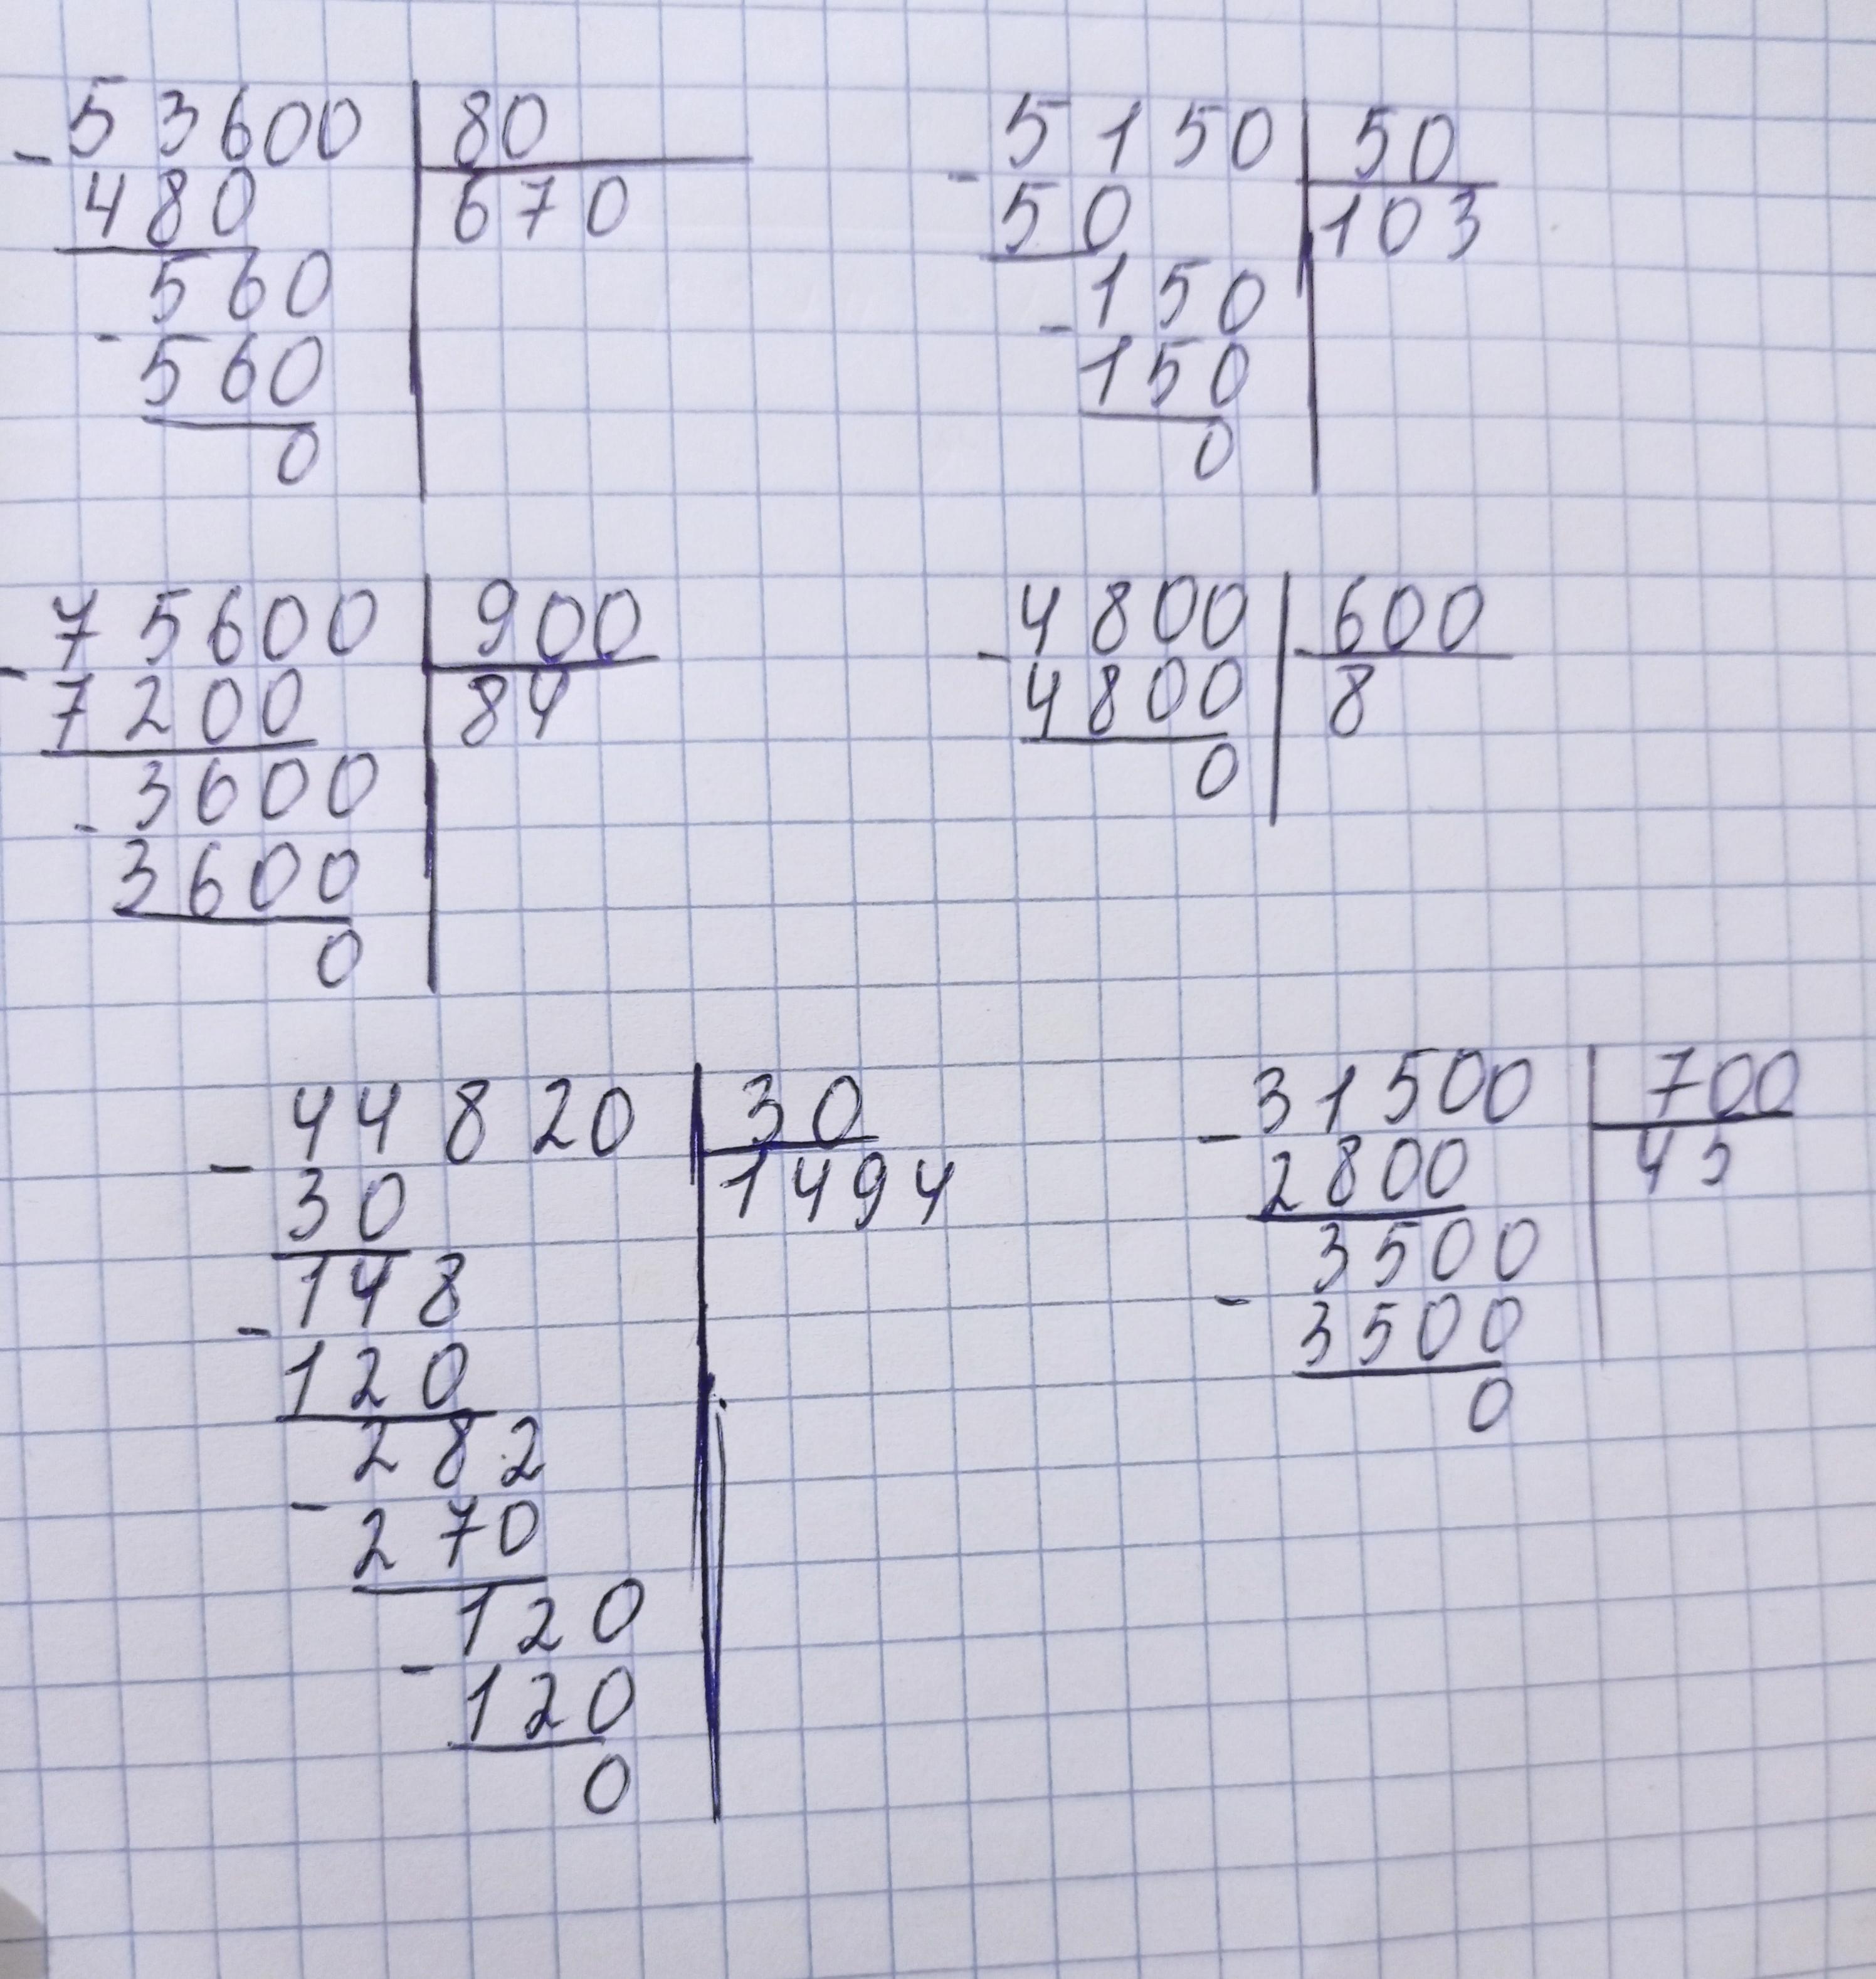 53600 80
- 480 670
560
- 560
0
5150 50
- 50 103
150
- 150
0
75600 900
- 7200 84
3600
- 3600
0
4800 600
- 4800 8
0
44820 30
- 30 1494
148
- 120
282
- 270
120
- 120
0
31500 700
- 2800 45
3500
- 3500
0